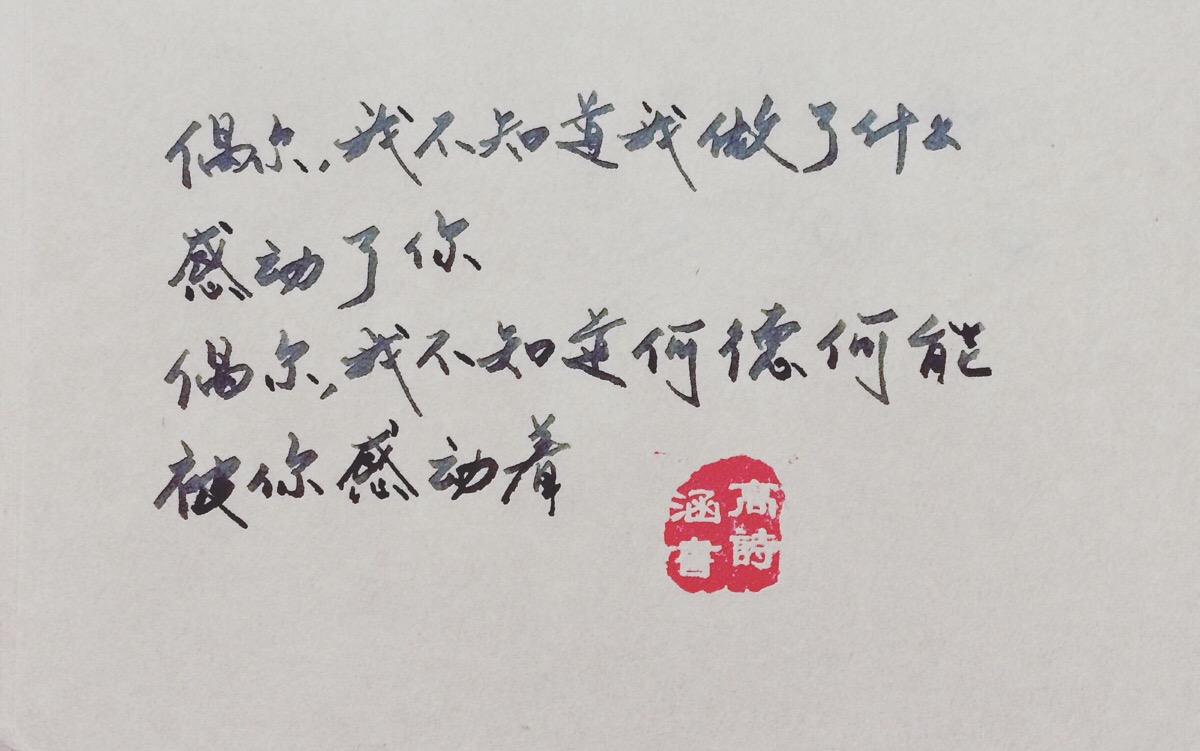 偶尔,我不知道我做了什么
感动了你
偶尔,我不知是何德何能
被你感动着
高詩
涵書